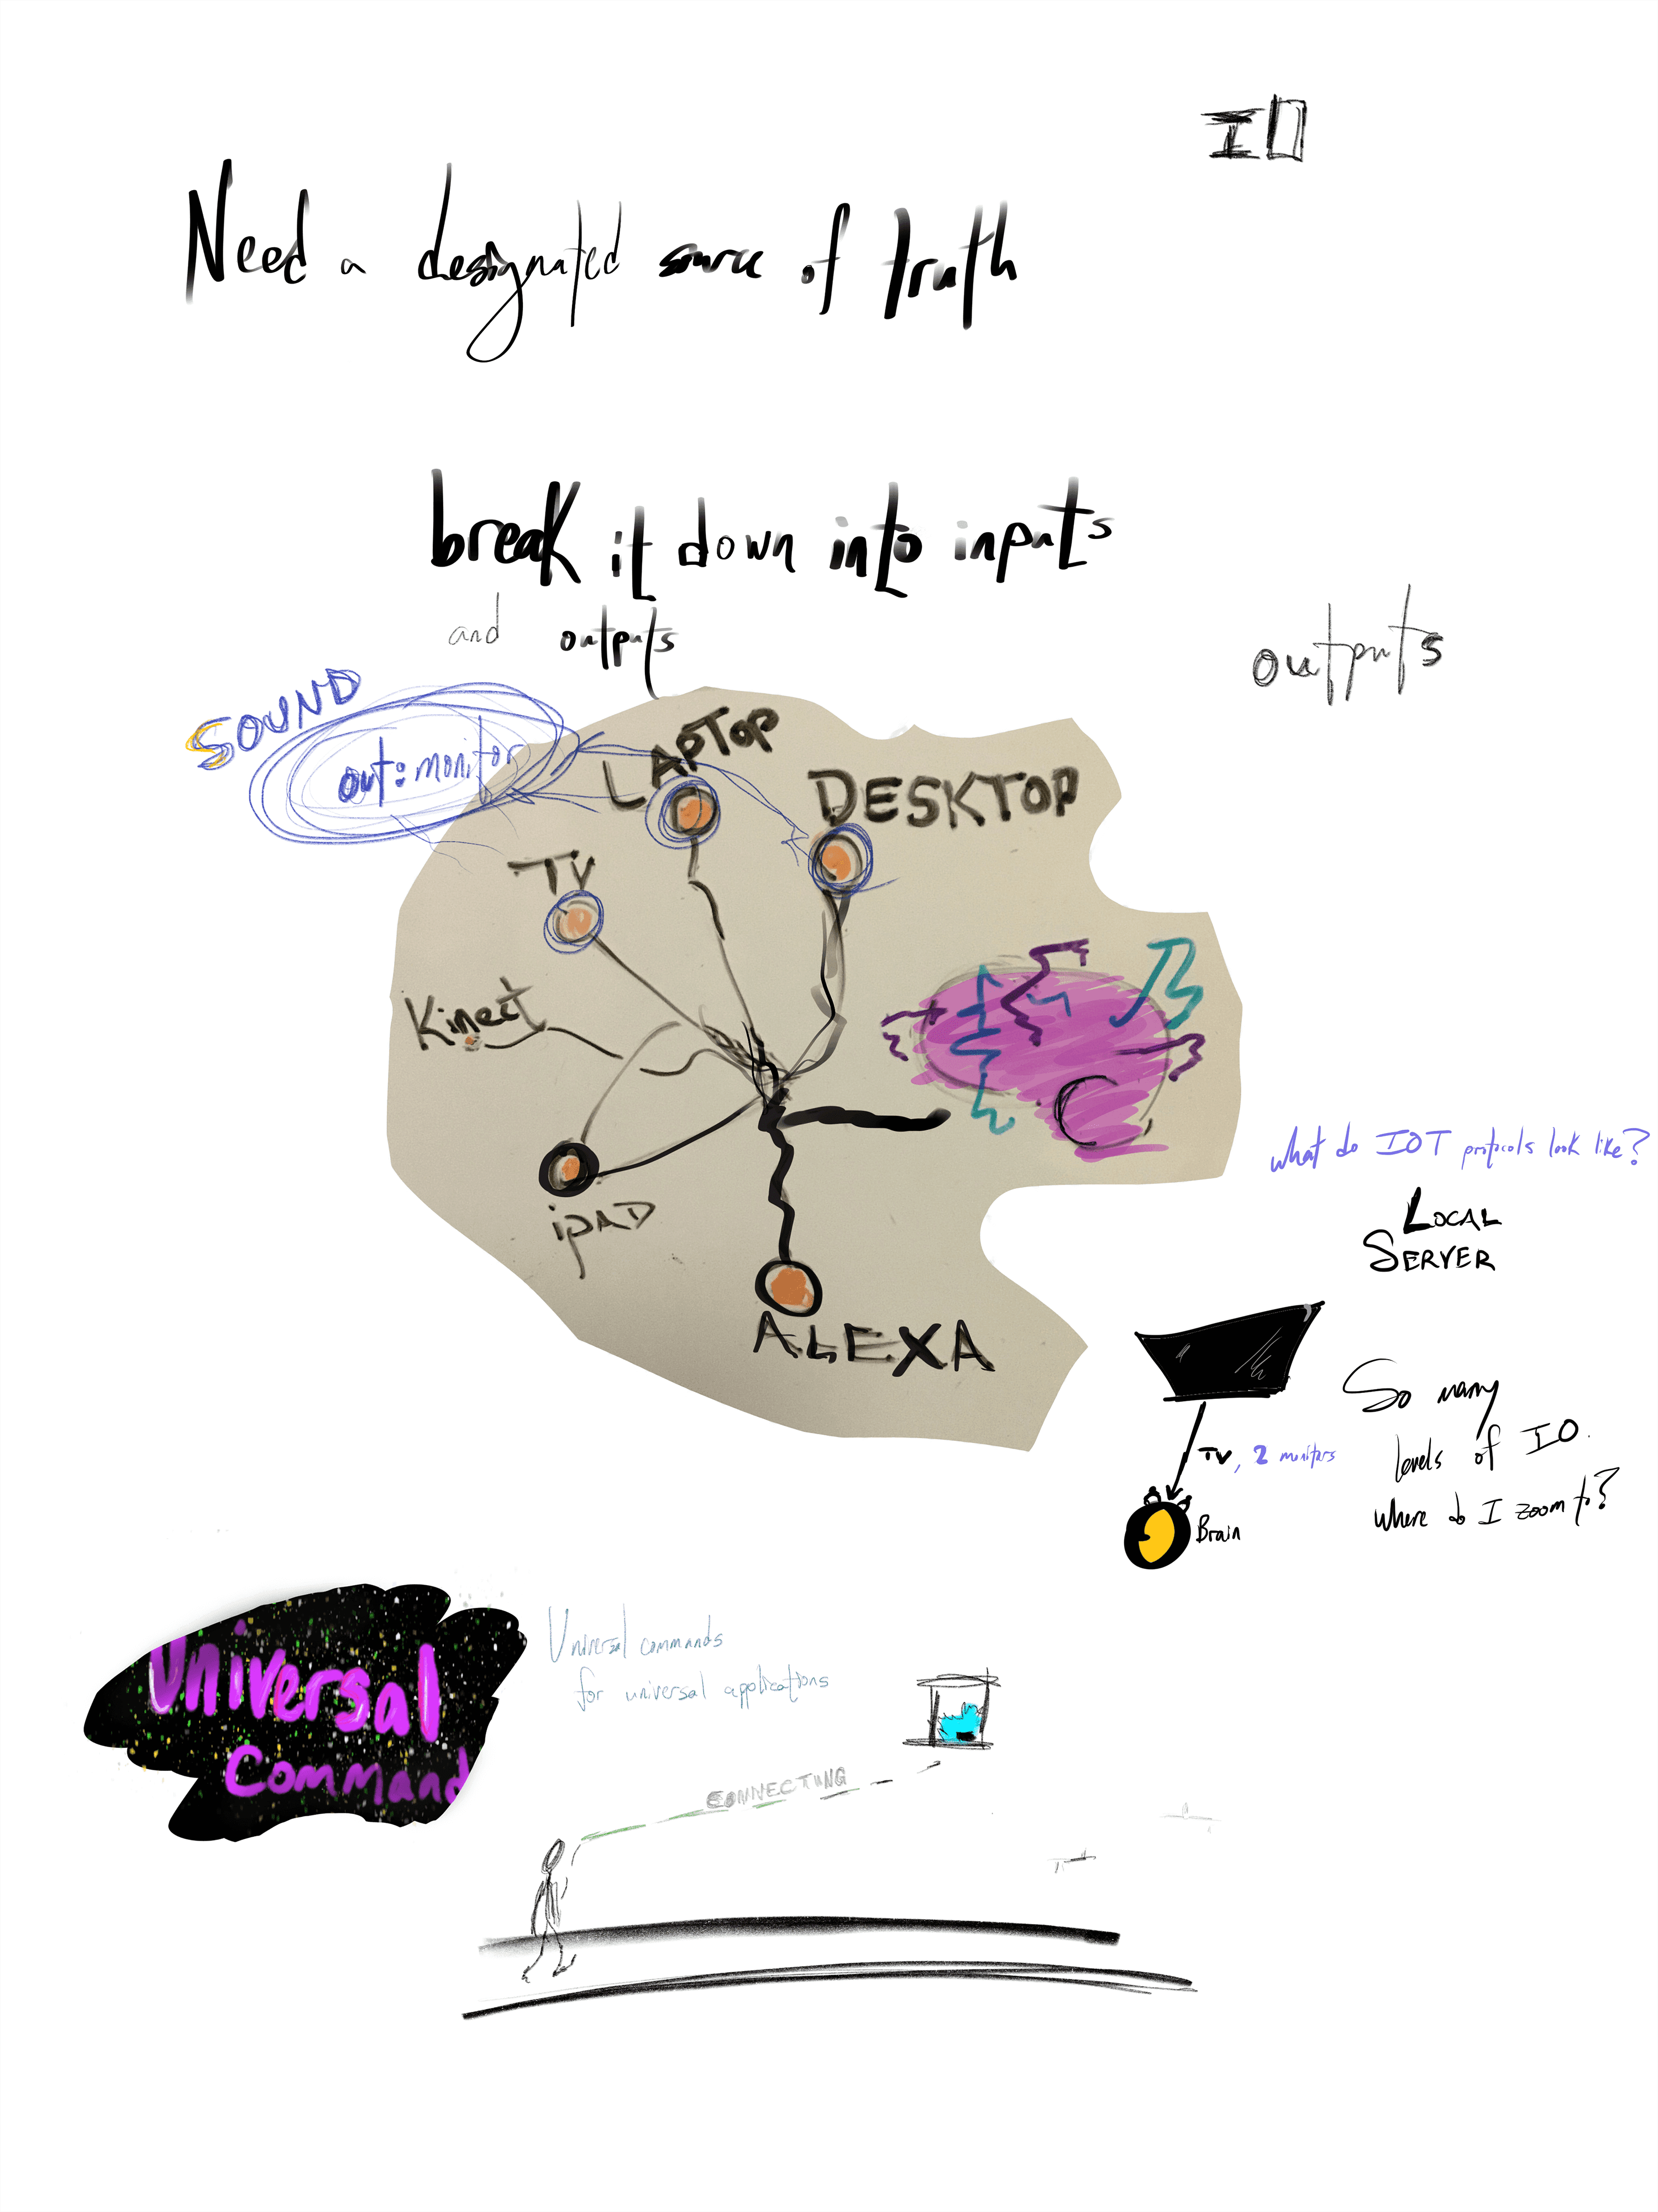 IO
Need a designated source of truth
break it down into inputs
and outputs
outputs
SOUND
out: monitor
LAPTOP
DESKTOP
TV
Kinect
iPAD
ALEXA
what do IOT protocols look like?
LOCAL
SERVER
TV, 2 monitors
Brain
So many
levels of IO.
where do I zoom to?
Universal
Command
Universal commands
for universal applications
CONNECTING